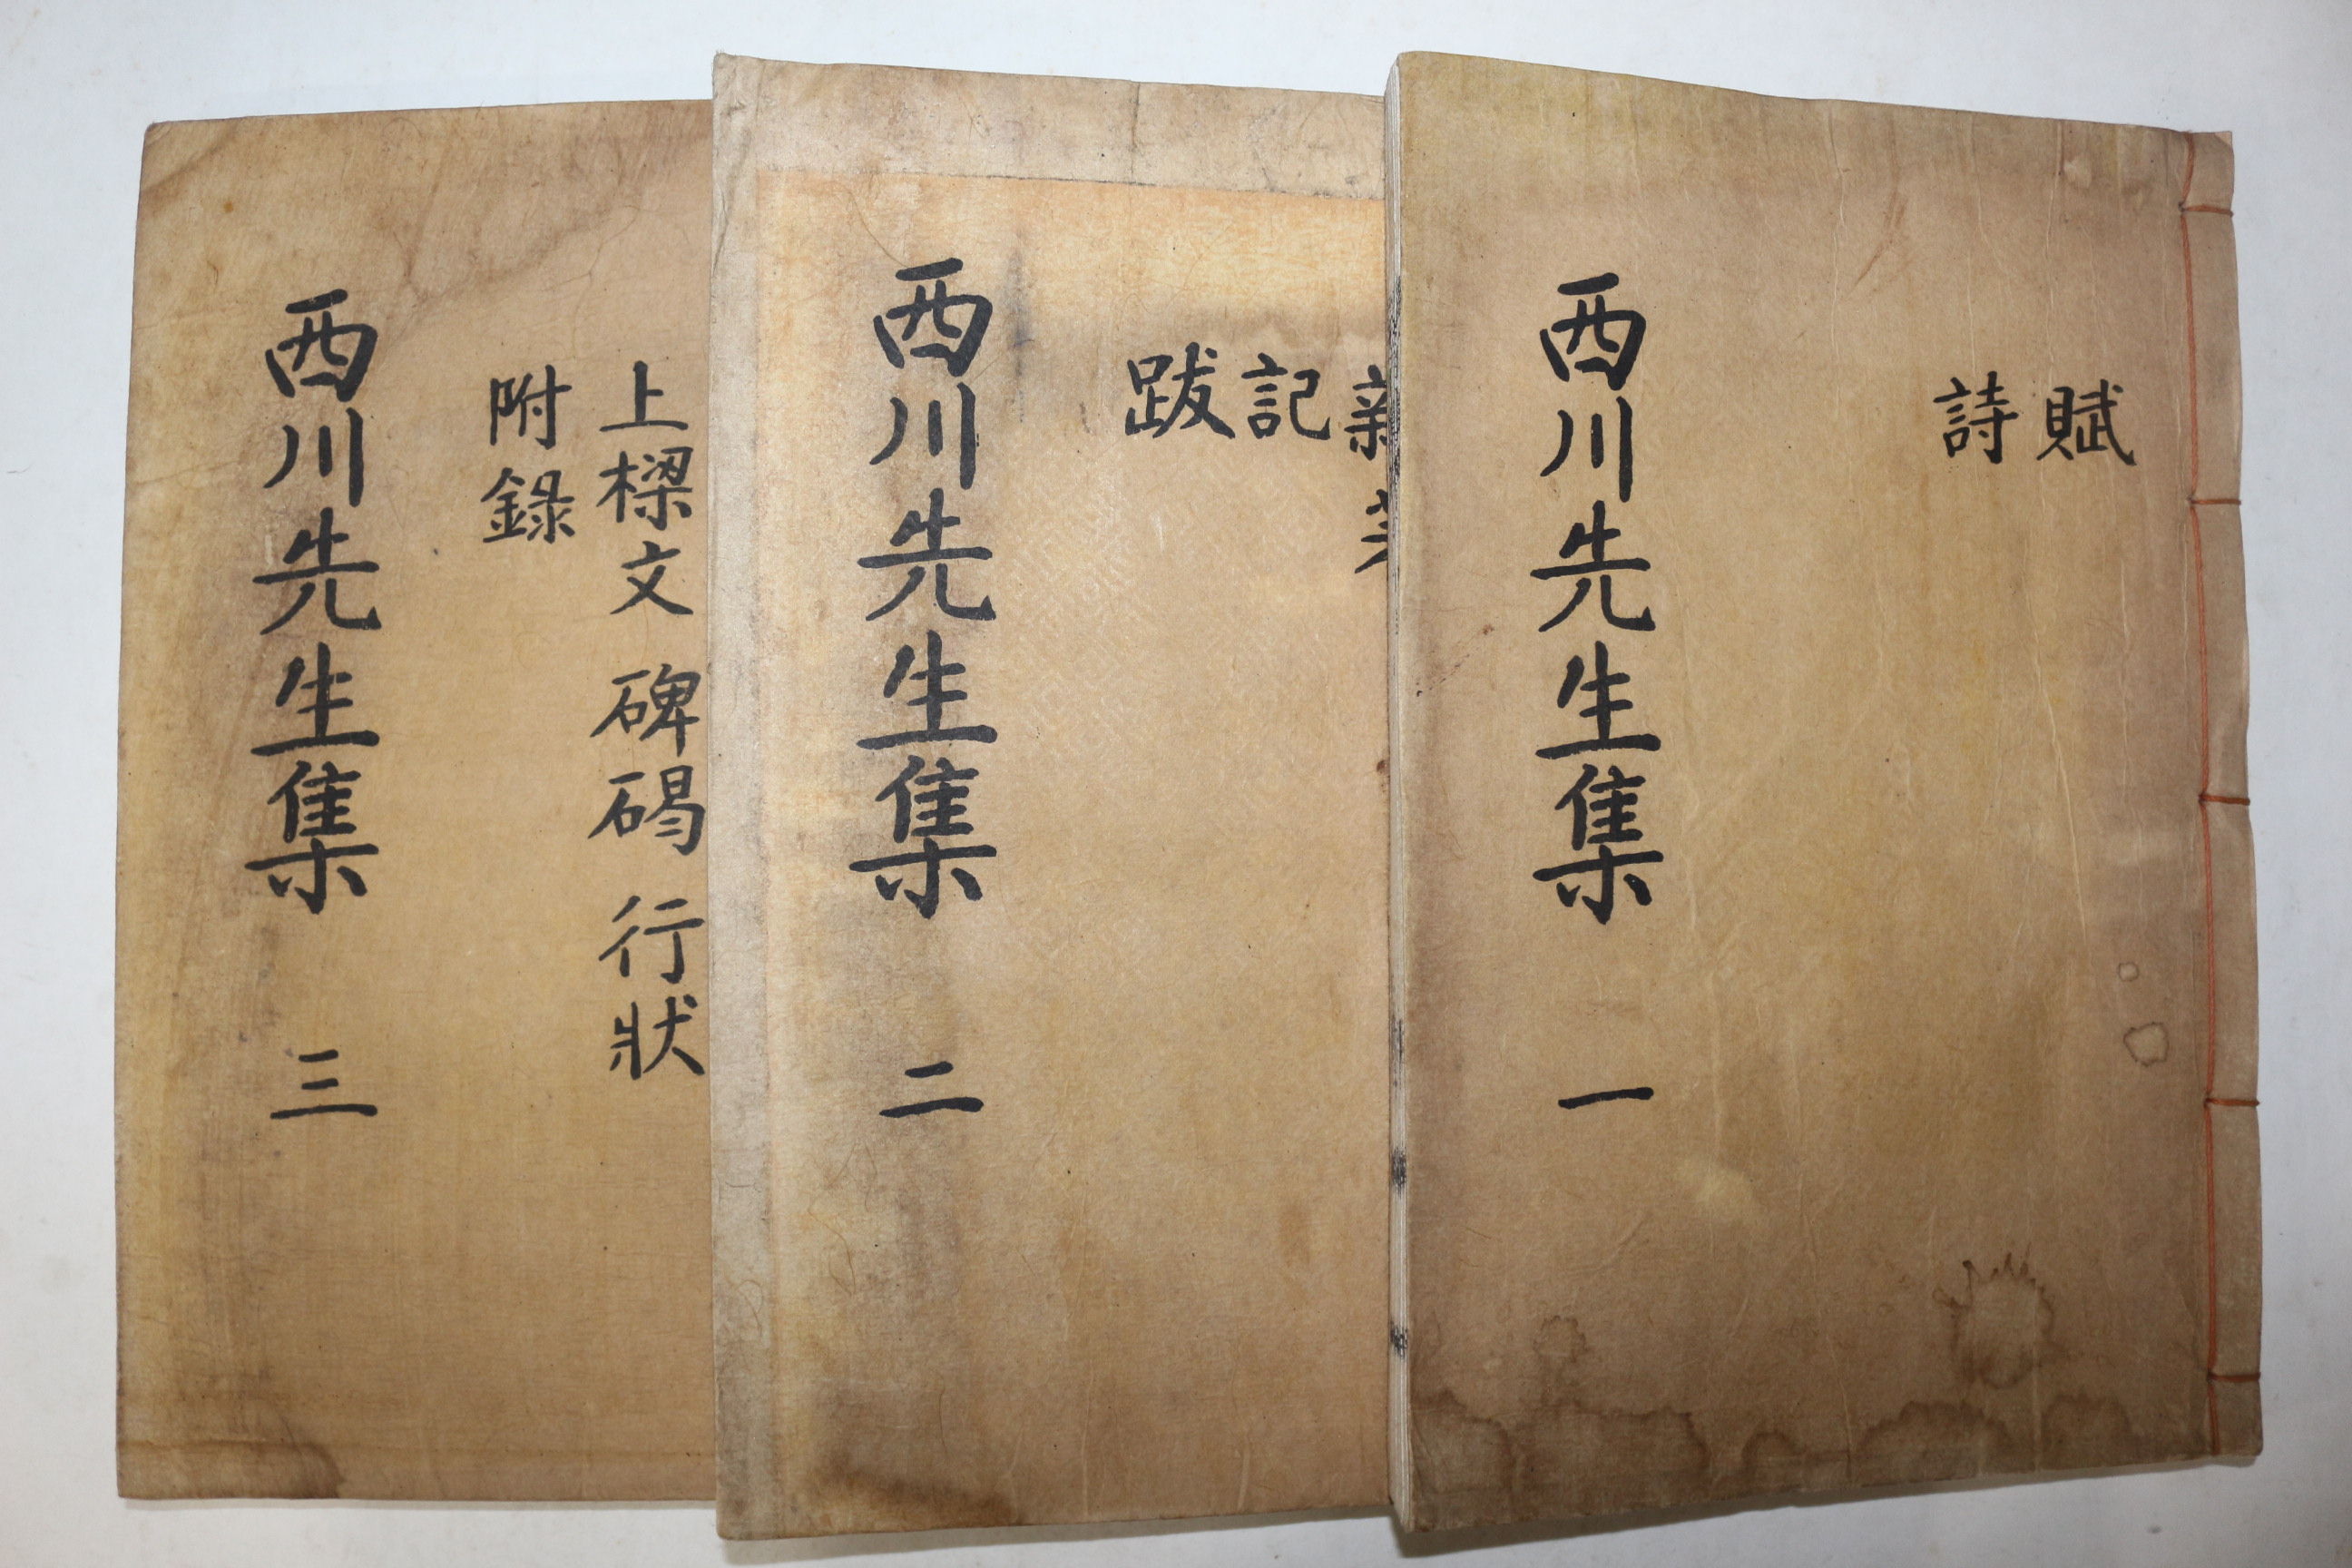 賦
詩
西川先生集 一
記
跋
西川先生集 二
上樑文 碑碣 行狀
附錄
西川先生集 三